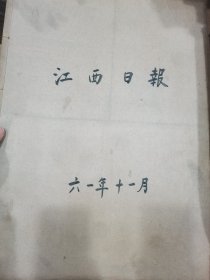 江西日報
六一年十一月